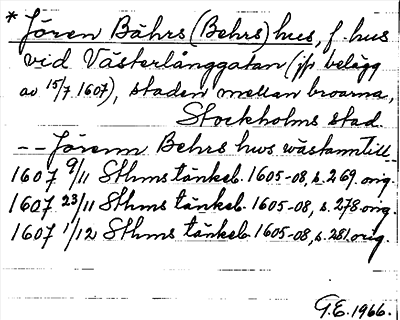 * Jören Bährs (Behrs) hus, f. hus
vid Västerlånggatan (jfr belägg
av 15/7 1607), staden mellan broarna,
Stockholms stad.
-- Jörenn Behrs hws wästanntill
1607 9/11 Sthms tänkeb. 1605-08, s. 269. orig.
1607 23/11 Sthms tänkeb. 1605-08, s. 278. orig.
1607 1/12 Sthms tänkeb. 1605-08, s. 281 orig.
G.E. 1966.